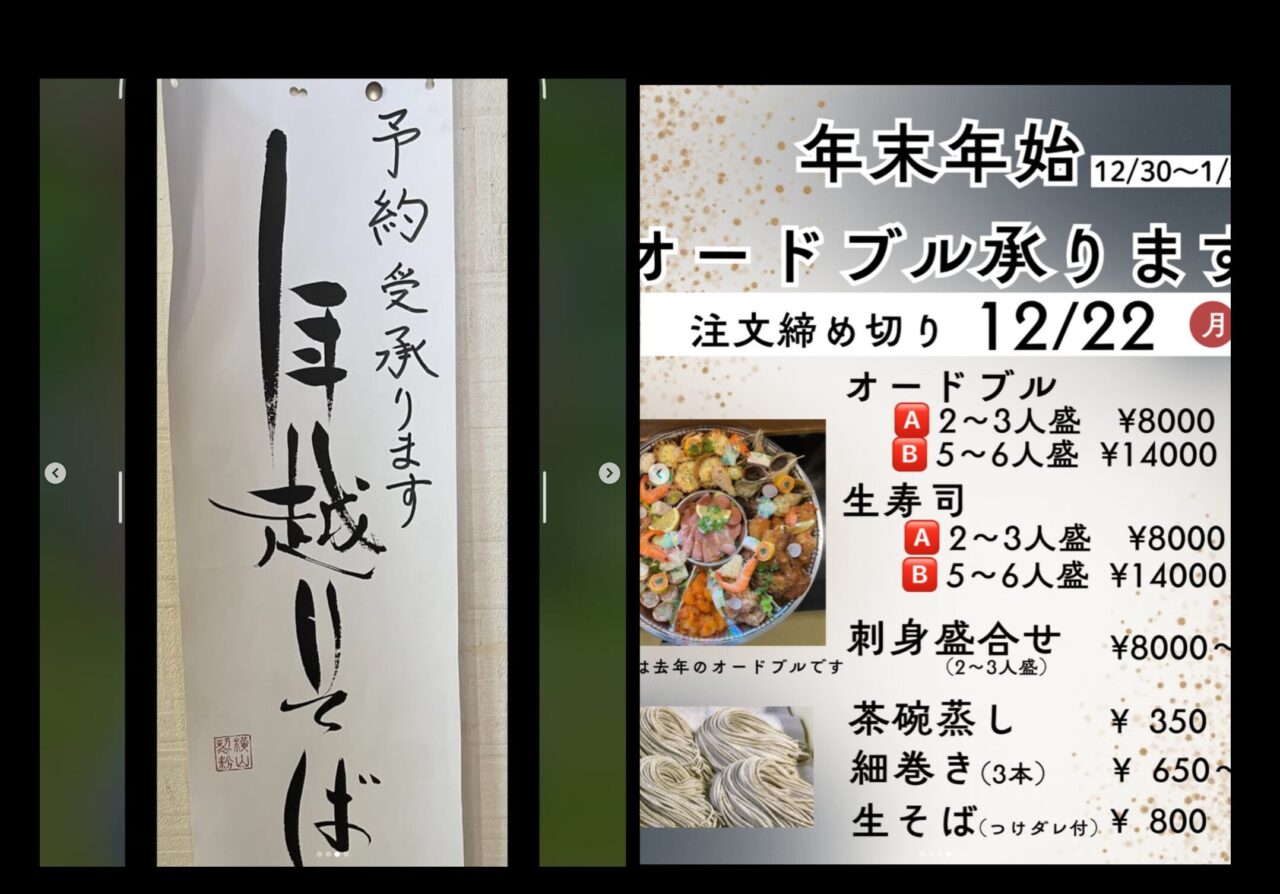 予約受承ります
年越そば
横山
製粉
年末年始 12/30〜1/
オードブル承ります
注文締め切り 12/22 月
オードブル
A 2〜3人盛 ¥8000
B 5〜6人盛 ¥14000
生寿司
A 2〜3人盛 ¥8000
B 5〜6人盛 ¥14000
刺身盛合せ ¥8000〜
(2〜3人盛)
は去年のオードブルです
茶碗蒸し ¥ 350
細巻き(3本) ¥ 650〜
生そば(つけダレ付) ¥ 800